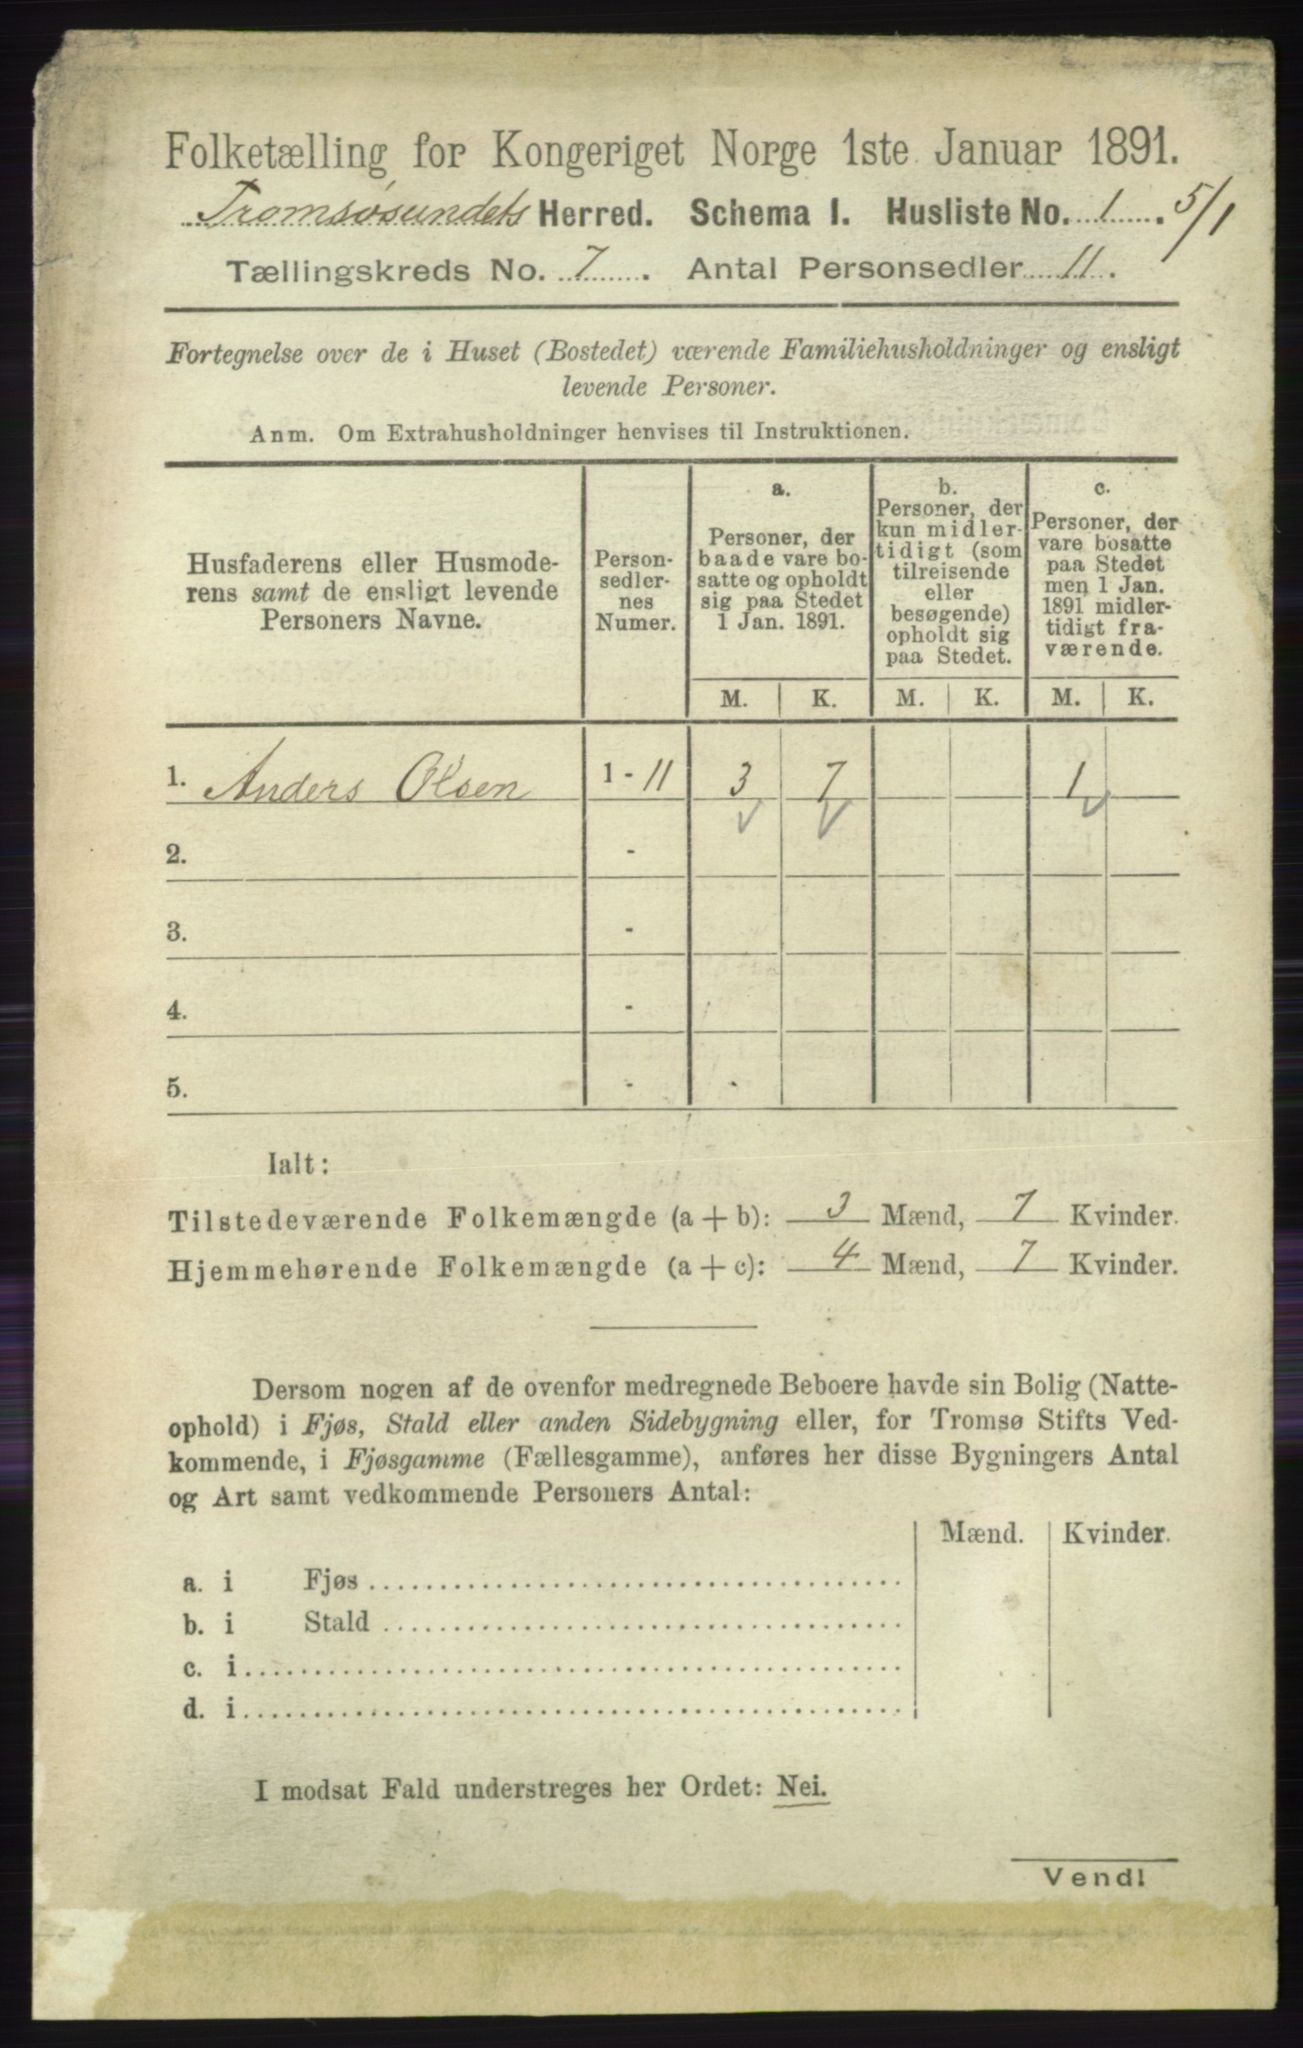 Folketælling for Kongeriget Norge 1ste Januar 1891.
Tromsøsundets Herred. Schema I. Husliste No. 1. 5/1
Tællingskreds No. 7. Antal Personsedler 11.
Fortegnelse over de i Huset (Bostedet) værende Familiehusholdninger og ensligt
levende Personer.
Anm. Om Extrahusholdninger henvises til Instruktionen.
Husfaderens eller Husmode-
rens samt de ensligt levende
Personers Navne.
Person-
sedler-
nes
Numer.
a.
Personer, der
baade vare bo-
satte og opholdt
sig paa Stedet
1 Jan. 1891.
b.
Personer, der
kun midler-
tidigt (som
tilreisende
eller
besøgende)
opholdt sig
paa Stedet.
c.
Personer, der
vare bosatte
paa Stedet
men 1 Jan.
1891 midler-
tidigt fra-
værende.
M. K. M. K. M. K.
1. Anders Olsen 1 - 11 3 7 1
2. -
3. -
4. -
5. -
Ialt:
Tilstedeværende Folkemængde (a + b): 3 Mænd, 7 Kvinder.
Hjemmehørende Folkemængde (a + c): 4 Mænd, 7 Kvinder.
Dersom nogen af de ovenfor medregnede Beboere havde sin Bolig (Natte-
ophold) i Fjøs, Stald eller anden Sidebygning eller, for Tromsø Stifts Ved-
kommende, i Fjøsgamme (Fællesgamme), anføres her disse Bygningers Antal
og Art samt vedkommende Personers Antal:
Mænd. Kvinder.
a. i Fjøs
b. i Stald
c. i
d. i
I modsat Fald understreges her Ordet: Nei.
Vend!